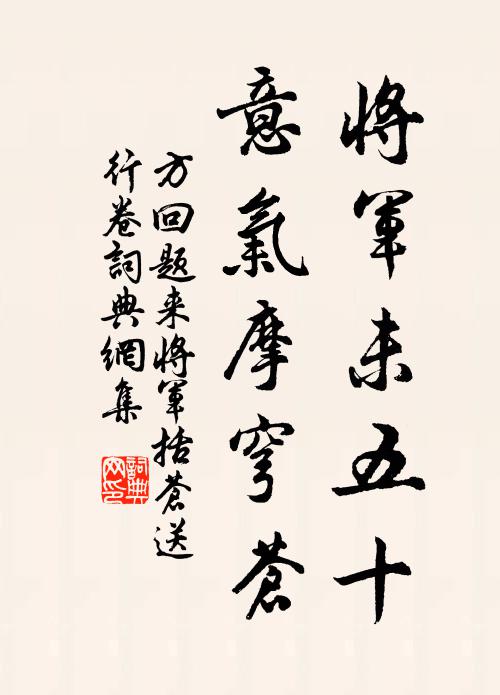 將軍未五十
意氣摩穹蒼
方回题来將軍括蒼送
行卷詞典網集
詞典
网印